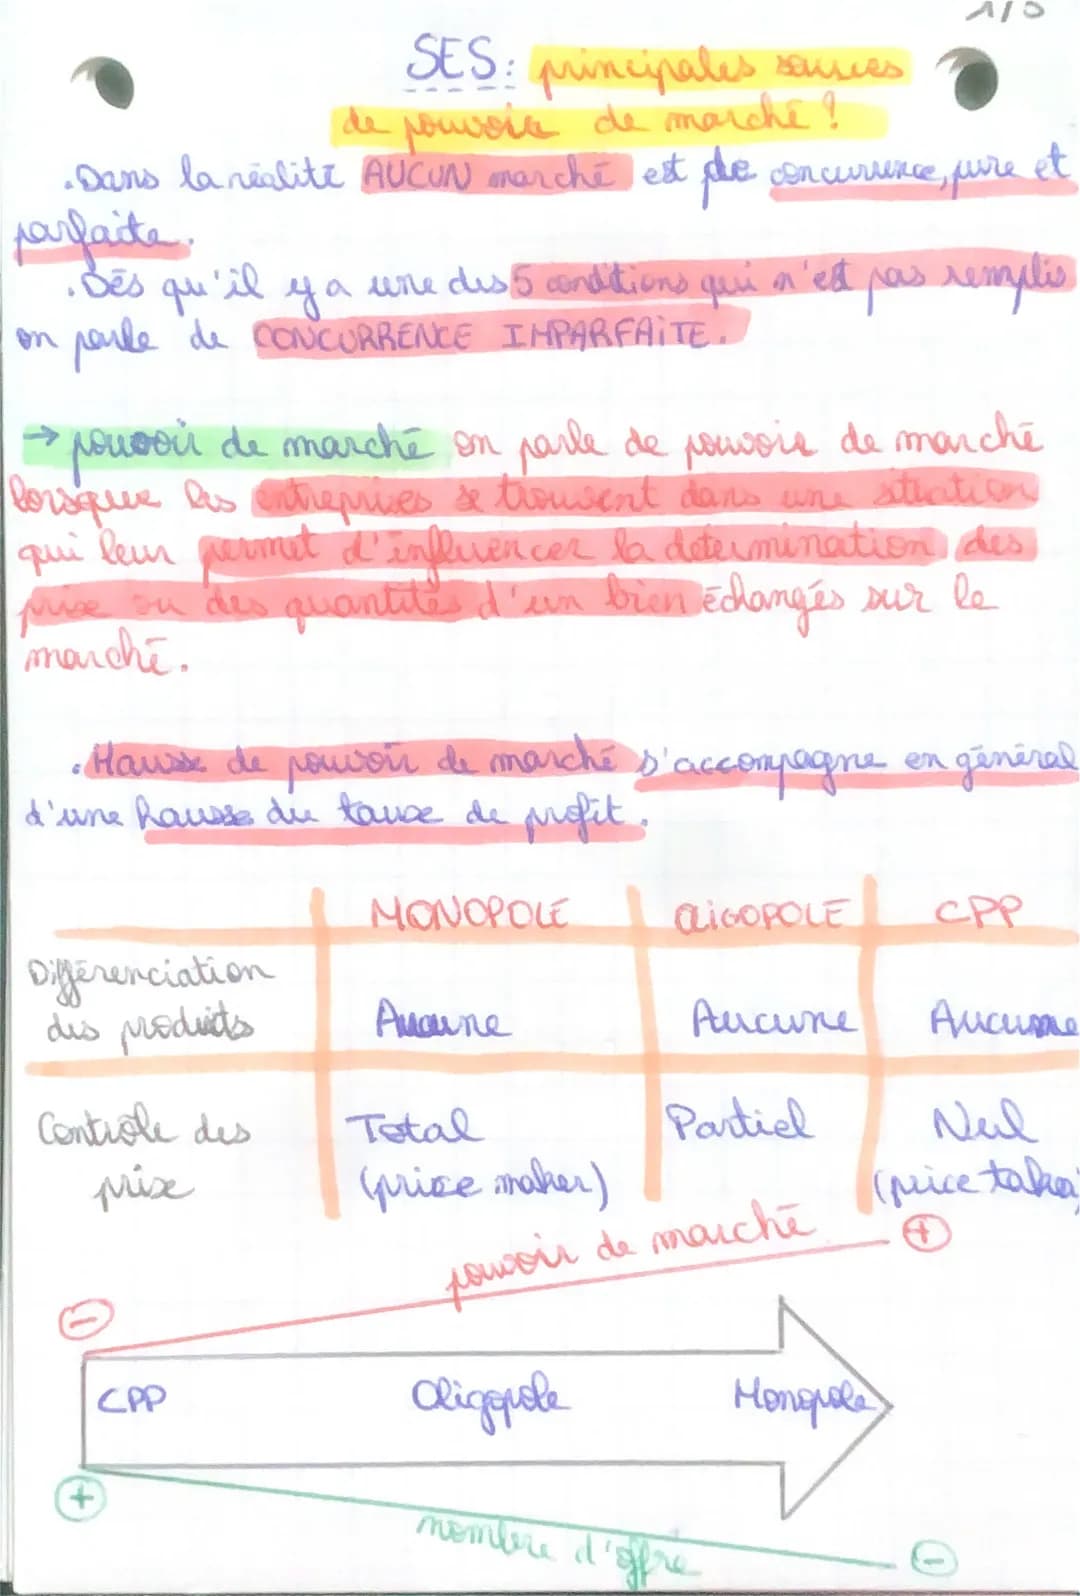 1/5
SES: principales sources
de pouvoir de marché?
.Dans la réalité AUCUN marché est de concurrence, pure et
parfaite.
.Dès qu'il y a une des 5 conditions qui n'est pas remplis
on parle de CONCURRENCE IMPARFAITE.
→ pouvoir de marché on parle de pouvoir de marché
lorsque les entreprises se trouvent dans une situation
qui leur permet d'influencer la détermination des
prix ou des quantités d'un bien échangés sur le
marché.
.Hausse de pouvoir de marché s'accompagne en général
d'une hausse du taux de profit.
MONOPOLE OLIGOPOLE CPP
Différenciation
des produits Aucune Aucune Aucune
Contrôle des Total Partiel Nul
prix (price maker) (price taker)
pouvoir de marché +
-
CPP Oligopole Monopole
+
nombre d'offre -